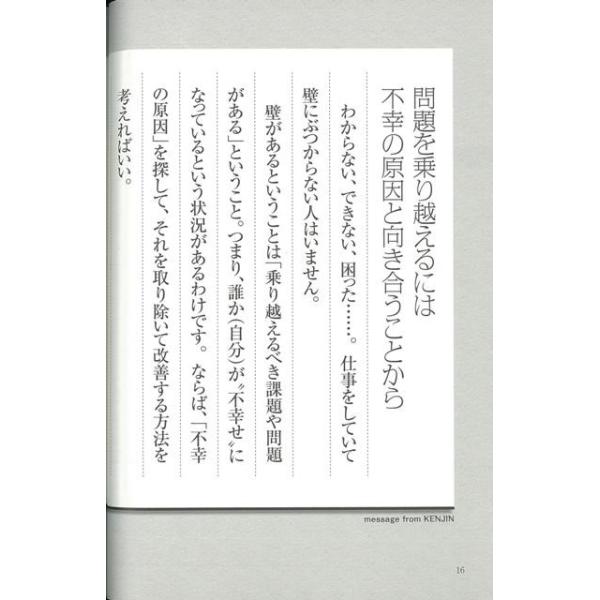 問題を乗り越えるには
不幸の原因と向き合うことから
わからない、できない、困った……。仕事をしていて
壁にぶつからない人はいません。
壁があるということは「乗り越えるべき課題や問題
がある」ということ。つまり、誰か（自分）が〝不幸せ〟に
なっているという状況があるわけです。ならば、「不幸
の原因」を探して、それを取り除いて改善する方法を
考えればいい。
message from KENJIN
16